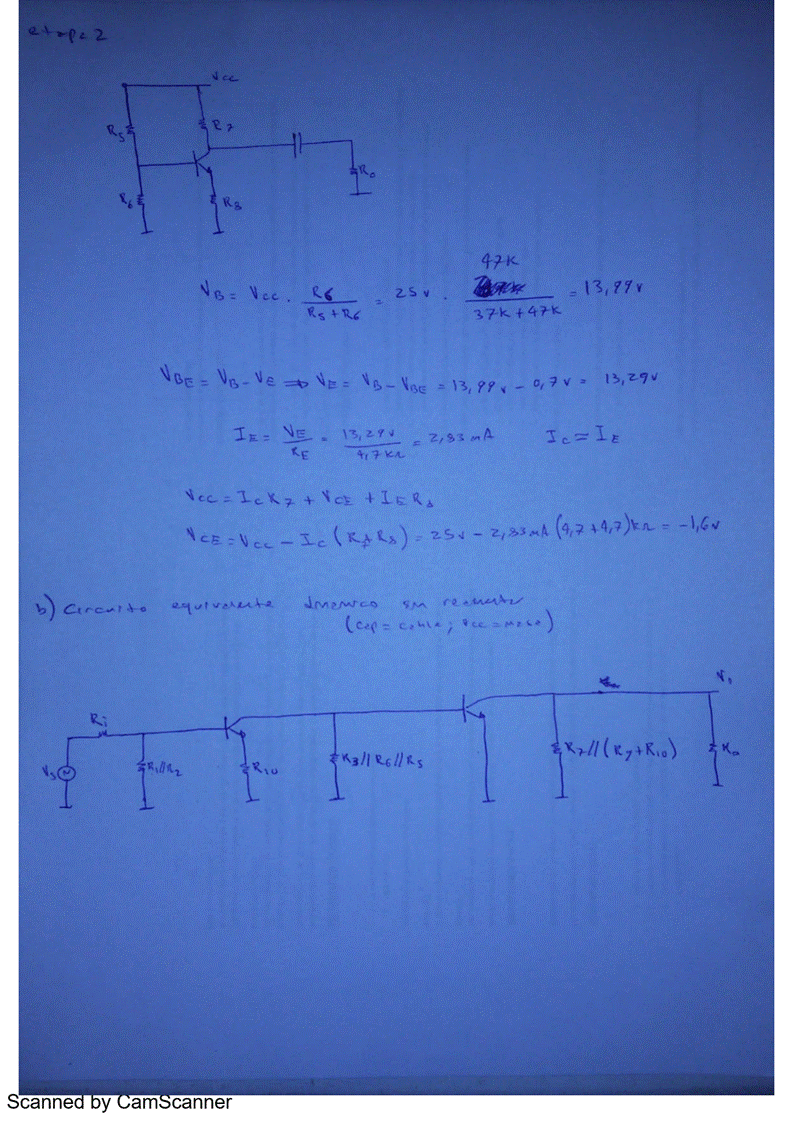 etapa 2
Vcc
R5
R7
R0
R6
R8
VB = Vcc . R6 / (R5 + R6) = 25v . 47K / (37K + 47K) = 13,99v
VBE = VB - VE ⇒ VE = VB - VBE = 13,99v - 0,7v = 13,29v
IE = VE / RE = 13,29v / 4,7KΩ = 2,83mA IC ≃ IE
Vcc = IC R7 + VCE + IE R8
VCE = Vcc - IC (R7 R8) = 25v - 2,83mA (4,7+4,7)KΩ = -1,6v
b) Circuito equivalente dinamico sin realimentar
(cap = cable; Vcc = masa)
V1
Ri
Vs
R1//R2
R10
R3//R6//R5
R7//(R9+R10)
R0
Scanned by CamScanner